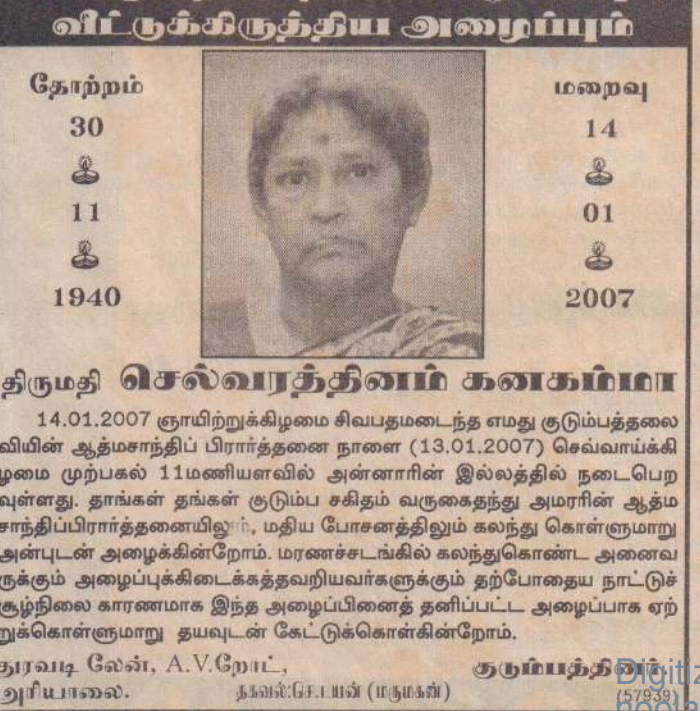 வீட்டுக்கிருத்திய அழைப்பும்
தோற்றம்
30
11
1940
மறைவு
14
01
2007
திருமதி செல்வரத்தினம் கனகம்மா
14.01.2007 ஞாயிற்றுக்கிழமை சிவபதமடைந்த எமது குடும்பத்தலை
வியின் ஆத்மசாந்திப் பிரார்த்தனை நாளை (13.01.2007) செவ்வாய்க்கி
ழமை முற்பகல் 11மணியளவில் அன்னாரின் இல்லத்தில் நடைபெற
வுள்ளது. தாங்கள் தங்கள் குடும்ப சகிதம் வருகைதந்து அமரரின் ஆத்ம
சாந்திப்பிரார்த்தனையிலும், மதிய போசனத்திலும் கலந்து கொள்ளுமாறு
அன்புடன் அழைக்கின்றோம். மரணச்சடங்கில் கலந்துகொண்ட அனைவ
ருக்கும் அழைப்புக்கிடைக்கத்தவறியவர்களுக்கும் தற்போதைய நாட்டுச்
சூழ்நிலை காரணமாக இந்த அழைப்பினைத் தனிப்பட்ட அழைப்பாக ஏற்
றுக்கொள்ளுமாறு தயவுடன் கேட்டுக்கொள்கின்றோம்.
துரவடி லேன், A.V.றோட், குடும்பத்தினர்
அரியாலை. தகவல்:செ.டயன் (மருமகன்) (57939)
Digitiz